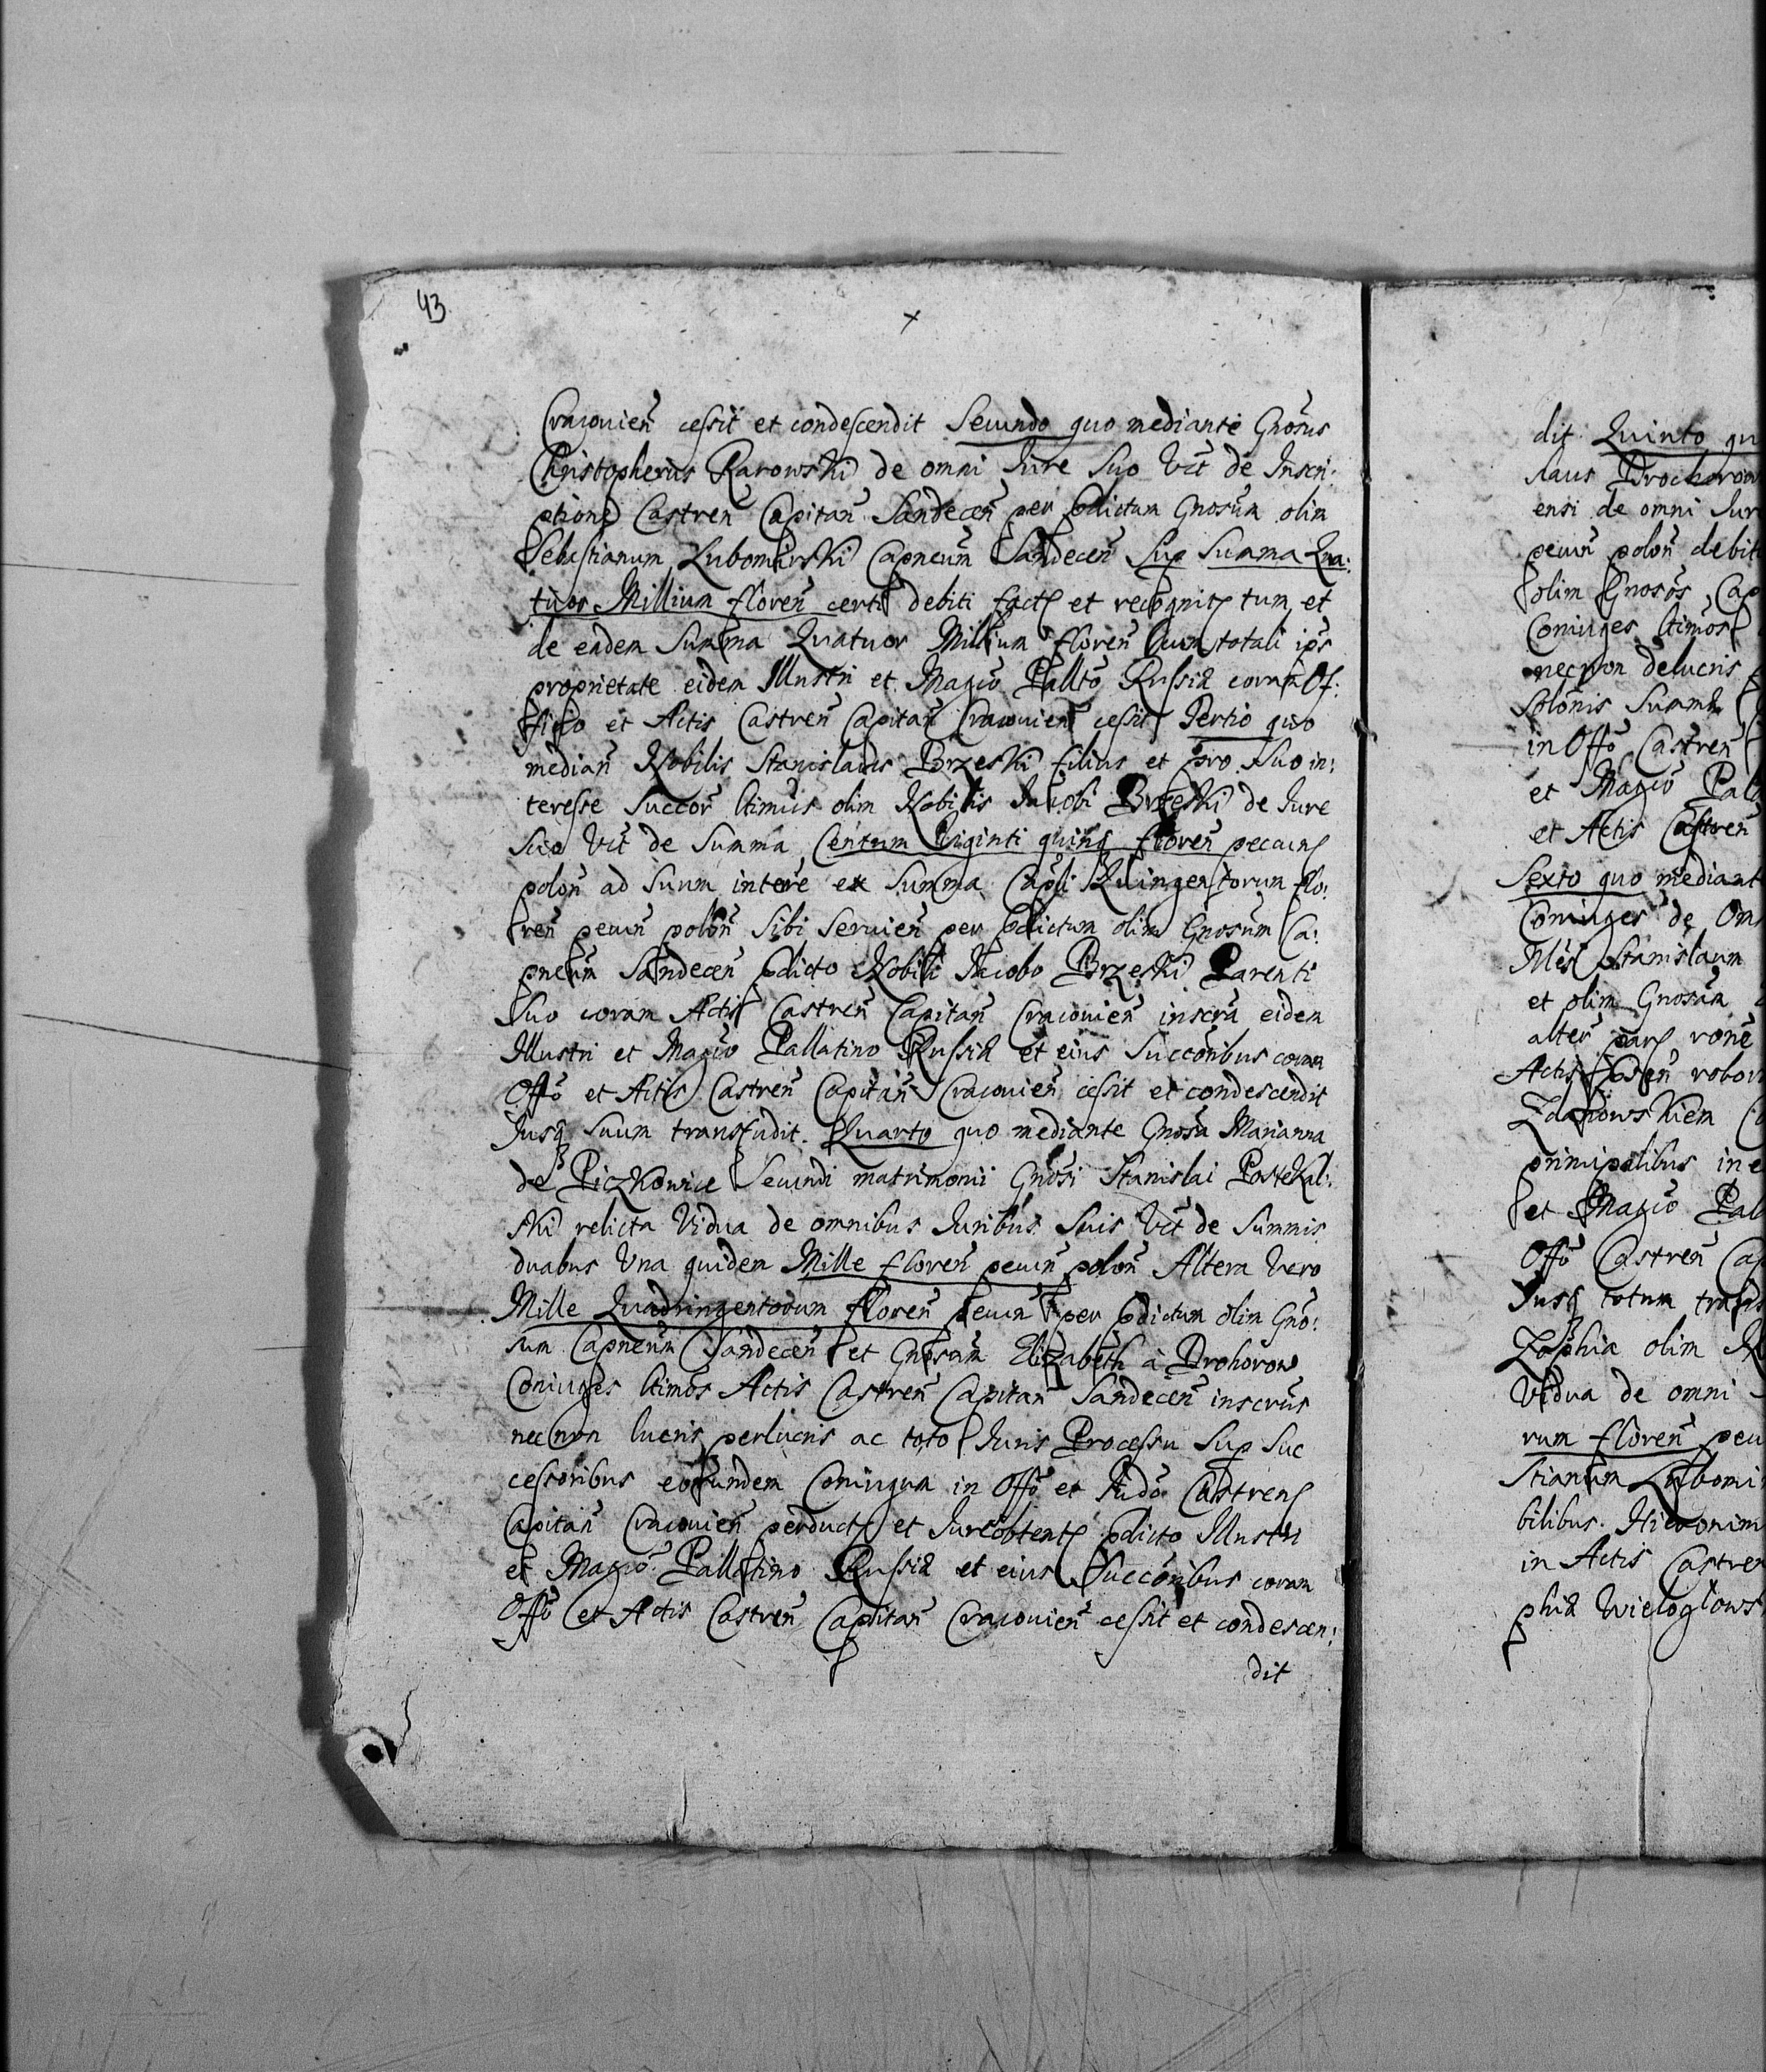 43
Cracouien̄ cessit et condescendit Secundo quo mediante Gnōsus
Christopherus Rarowski de omni Iure Suo Vc̄t de Inscri:
ptione Castren̄ Capitan̄ Sandecen̄ per pdictum Gnosum olim
Sebastianum Lubomirski Capneum̄ Sandecen̄ Sup Summa Qua:
tuor Millium floren̄ certi debiti fact et recognit tum et
de eadem Summa Quatuor Millium floren̄ cum totali ips̄
proprietate eidem Illustri et Magcō Palltō Russiæ coram Of:
ficio et Actis Castren̄ Capitan̄ Cracouien̄ cessit Tertio quo
median̄ Nobilis Stanislaus Brzeski filius et pro Suo in:
teresse Succor̄ ltimus olim Nobilis Iacobi Brzeski de Iure
Suo Vc̄t de Summa Centum Viginti quinq floren̄ pecun
polon̄ ad Suum interē ex Summa Capli Quingentorum flo:
ren̄ pecun̄ polon̄ Sibi Seruien̄ per pdictum olim Gnosum Ca:
pneum̄ Sandecen̄ pdicto Nobili Iacobo Brzeski Parenti
Suo coram Actis Castren̄ Capitan̄ Cracouien̄ inscrā eidem
Illustri et Magcō Pallatino Russiæ et eius Succōribus coram
Offō et Actis Castren̄ Capitan̄ Cracouien̄ cessit et condescendit
Iusq Suum transfudit. Quarto quo mediante Gnosā Marianna
de Piczkowice Secundi matrimonii Gnōsi Stanislai Postekal:
ski relicta Vidua de omnibus Iuribus Suis Vc̄t de Summis
duabus Vna quidem Mille floren̄ pecun̄ polon̄ Altera Vero
Mille Quadringentorum floren̄ pecun̄ per pdictum olim Gnō:
sum Capneum̄ Sandecen̄ et Gnosam Elizabeth à Drohorow
Coniuges ltimōs Actis Castren̄ Capitan̄ Sandecen̄ inscrūs
nec non lucris perlucris ac toto Iuris Processu Sup Suc
cessoribus eorundem Coniugum in Offō et Iudō Castren
Capitan̄ Cracouien̄ perduct et Iureobtent pdicto Illustri
et Magcō Pallatino Russiæ et eius Succōribus coram
Offō et Actis Castren̄ Capitan̄ Cracouien̄ cessit et condescen:
dit
dit Quinto qu
slaus Drochorow
ensi de omni Iur
pecun̄ polon̄ debit
olim Gnosōs Cap
Coniuges ltimōs
necnon delucris
Solōnis Summæ
in Offō Castren̄
et Magcō Pall
et Actis Castren̄
Sexto quo mediant
Coniuges de Om
Stanislaum
et olim Gnosum
alter̄ par ronē
Actis robor
Zdanowskiem Co
principalibus in e
et Magcō Pal
Offō Castren̄ Cap
Iusq totum trans
Zophia olim N
Vidua de omni
rum floren̄ pecu
stianum Lubomir
bilibus Hieronim
in Actis Castren
phiæ Wieloglows